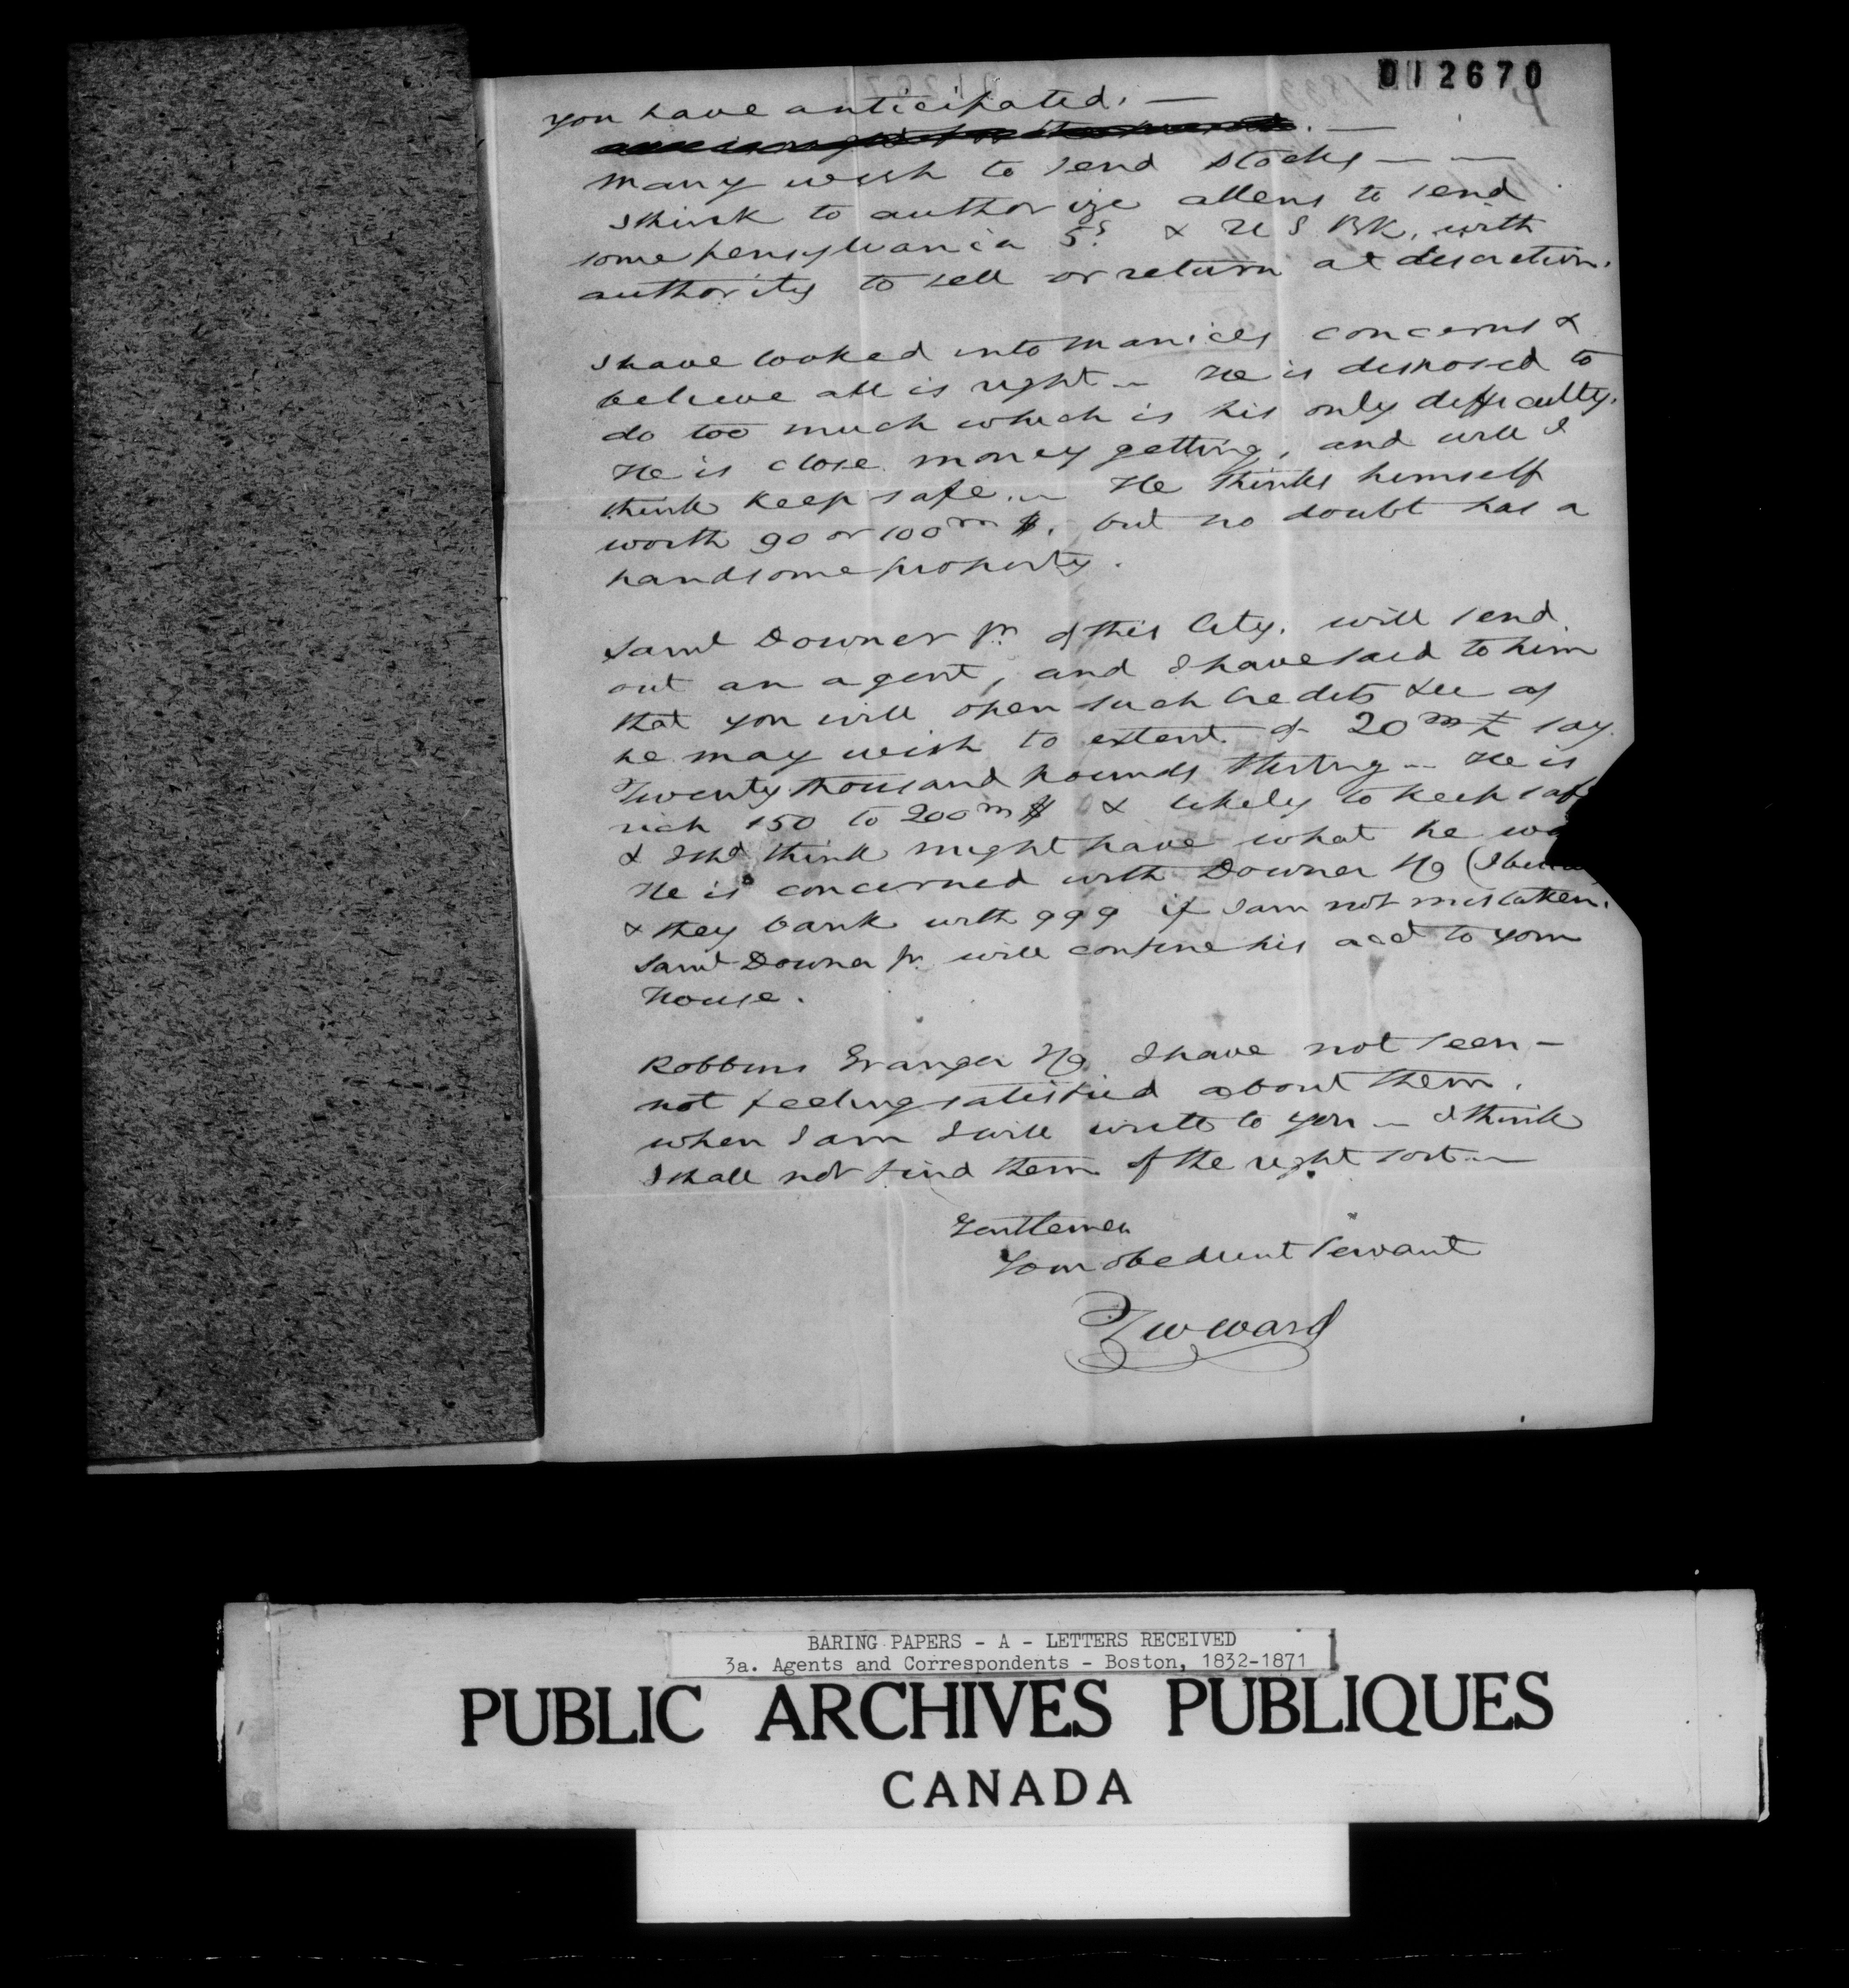 012670
you have anticipated. —
many wish to send stocks — —
I think to authorize Allens to send
some pensylvania 5s & U S BK, with
authority to sell or return at discretion.
I have looked into Manices concerns &
believe all is right — He is disposed to
do too much which is his only difficulty.
He is close money getting, and will I
think keep safe. — He thinks himself
worth 90 or 100m $, but no doubt has a
handsome property.
Saml Downer Jr. of this City. will send
out an agent, and I have said to him
that you will open such Credits &cc as
he may wish to extent of 20m £ say
Twenty thousand pounds Sterling — He is
rich 150 to 200m $ & likely to keep saf
& Shd think might have what he
He is concerned with Downer & Co (I
& they bank with 999 if I am not mistaken.
Saml Downer Jr. will confine his acct to your
House.
Robbins Granger & Co I have not seen —
not feeling satisfied about them.
when I am I will write to you — I think
I shall not find them of the right sort —
Gentlemen
Your obedient Servant
T W Ward
BARING PAPERS - A - LETTERS RECEIVED
3a. Agents and Correspondents - Boston, 1832-1871
PUBLIC ARCHIVES PUBLIQUES
CANADA